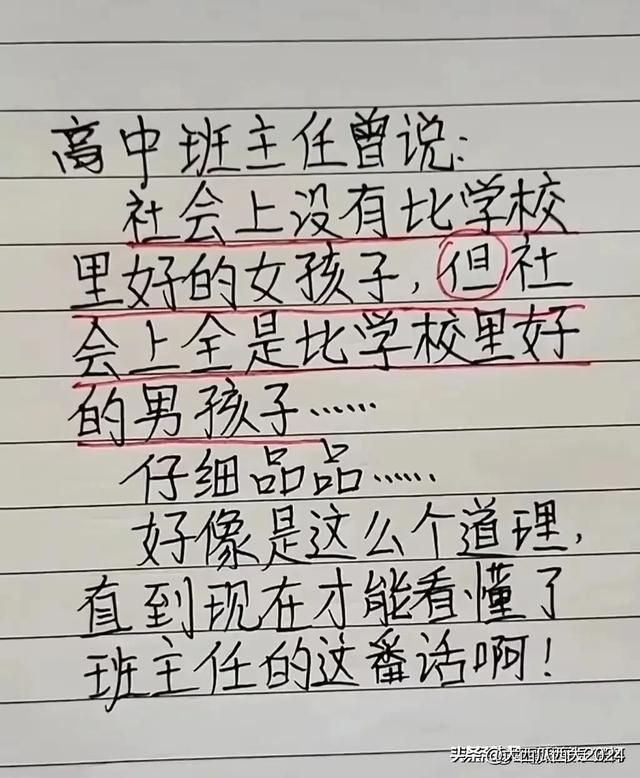 高中班主任曾说:
社会上没有比学校
里好的女孩子,但社
会上全是比学校里好
的男孩子……
仔细品品……
好像是这么个道理,
直到现在才能看懂了
班主任的这番话啊!
头条
2024